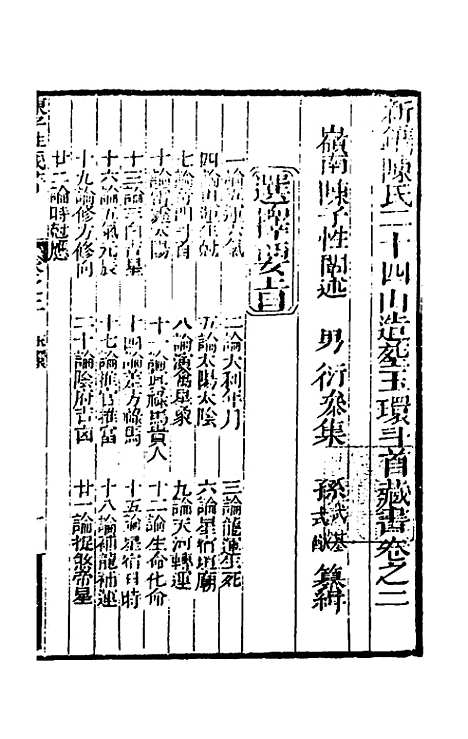 新鐫陳氏二十四山造塟玉環斗首藏書卷之二
嶺南陳子性閣述 男衍叅集 孫 式 纂緝
選擇要旨
一論五運六氣 二論大利年月 三論龍運生死
四論 五論太陽太陰 六論星宿垣廟
七論 八論演禽星象 九論天河轉運
十論 太陽 十一論真祿馬貴人 十二論生命化命
十三論三白吉星 十四論差方祿馬 十五論星宿日時
十六論五氣元辰 十七論推官推富 十八論補龍補運
十九論修方修向 二十論陰府吉凶 廿一論捉煞帝星
廿二論時剋應
陳子性藏書 卷之二